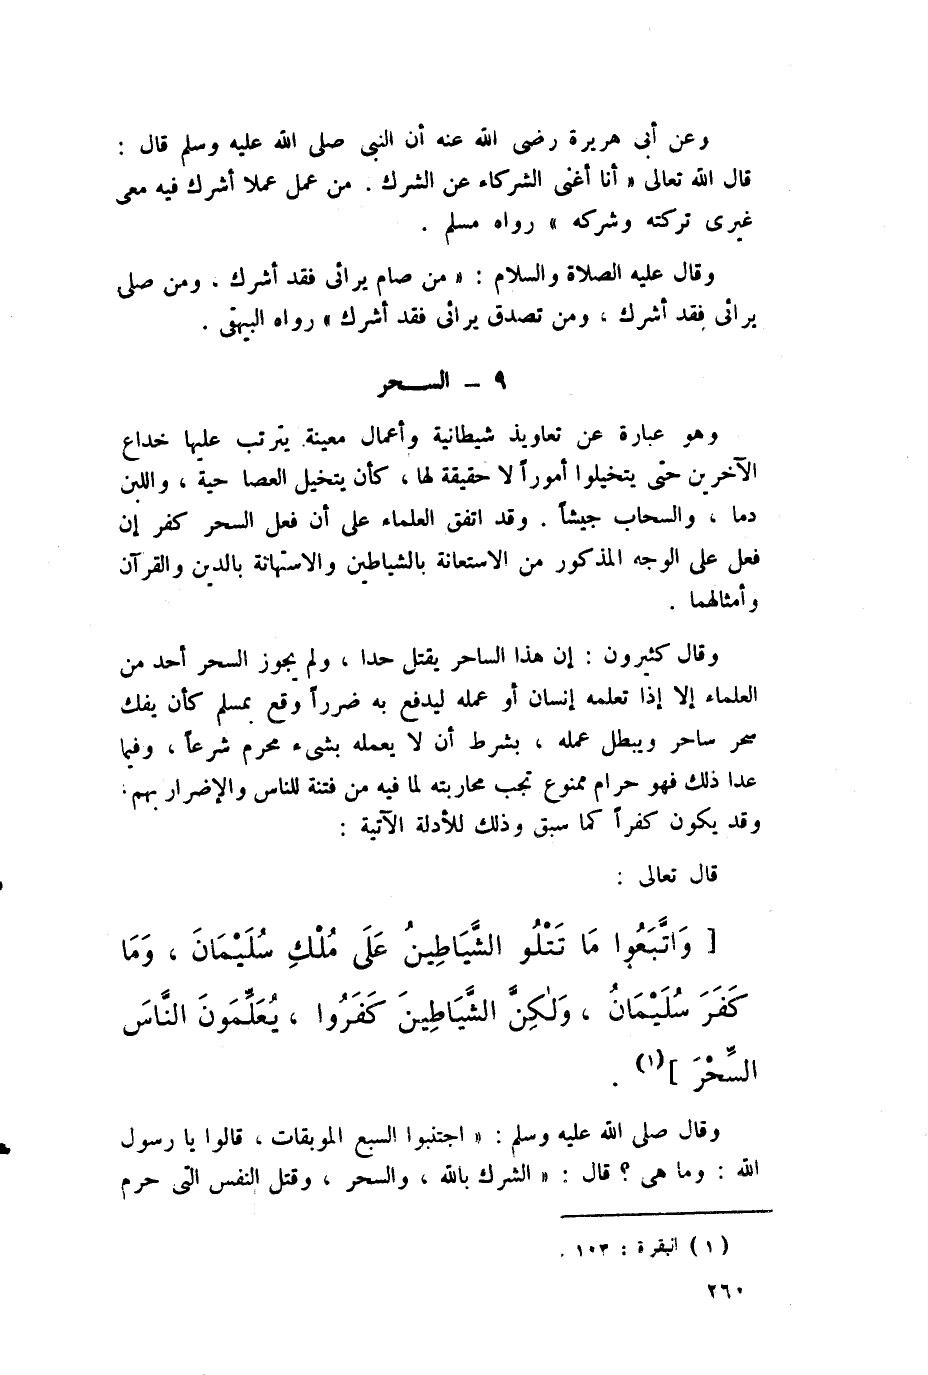 وعن أبى هريرة رضى الله عنه أن النبى صلى الله عليه وسلم قال :
قال الله تعالى « أنا أغنى الشركاء عن الشرك . من عمل عملا أشرك فيه معى
غيرى تركته وشركه » رواه مسلم .
وقال عليه الصلاة والسلام : « من صام يرائى فقد أشرك ، ومن صلى
يرائى فقد أشرك ، ومن تصدق يرائى فقد أشرك » رواه البيهقى .
٩ – الســـحر
وهو عبارة عن تعاويذ شيطانية وأعمال معينة يترتب عليها خداع
الآخرين حتى يتخيلوا أموراً لا حقيقة لها ، كأن يتخيل العصا حية ، واللبن
دما ، والسحاب جيشاً . وقد اتفق العلماء على أن فعل السحر كفر إن
فعل على الوجه المذكور من الاستعانة بالشياطين والاستهانة بالدين والقرآن
وأمثالهما .
وقال كثيرون : إن هذا الساحر يقتل حدا ، ولم يجوز السحر أحد من
العلماء إلا إذا تعلمه إنسان أو عمله ليدفع به ضرراً وقع بمسلم كأن يفك
سحر ساحر ويبطل عمله ، بشرط أن لا يعمله بشىء محرم شرعاً ، وفيما
عدا ذلك فهو حرام ممنوع تجب محاربته لما فيه من فتنة للناس والإضرار بهم ،
وقد يكون كفراً كما سبق وذلك للأدلة الآتية :
قال تعالى :
[ وَاتَّبَعُوا مَا تَتْلُو الشَّيَاطِينُ عَلَى مُلْكِ سُلَيْمَانَ ، وَمَا
كَفَرَ سُلَيْمَانُ ، وَلٰكِنَّ الشَّيَاطِينَ كَفَرُوا ، يُعَلِّمُونَ النَّاسَ
السِّحْرَ ] (١) .
وقال صلى الله عليه وسلم : « اجتنبوا السبع الموبقات ، قالوا يا رسول
الله : وما هى ؟ قال : « الشرك بالله ، والسحر ، وقتل النفس التى حرم
(١) البقرة : ١٠٣ .
٢٦٠